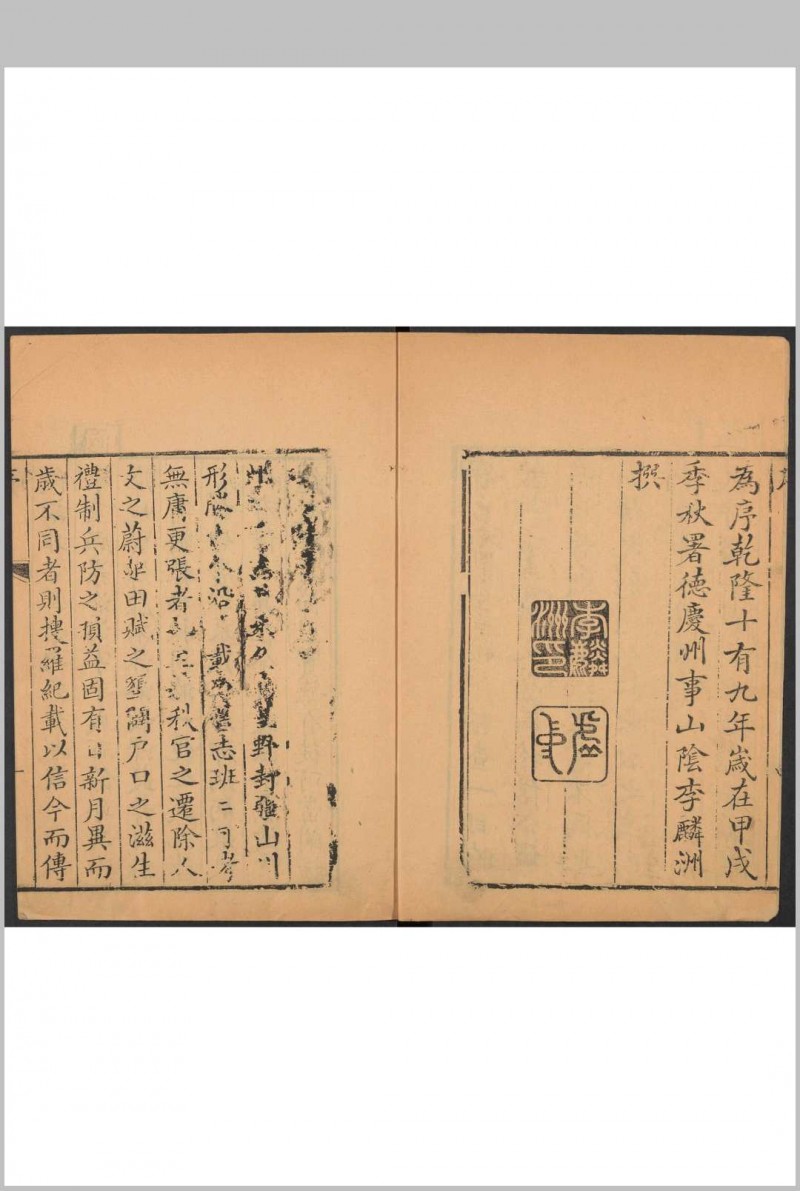 為序乾隆十有九年歲在甲戌
季秋署德慶州事山陰李麟洲
撰
李麟洲印
野封疆山川
形沿載志班班可考
無庸更張者秩官之遷除人
文之蔚起田賦之墾闢戶口之滋生
禮制兵防之損益固有日新月異而
歲不同者則搜羅紀載以信今而傳
序